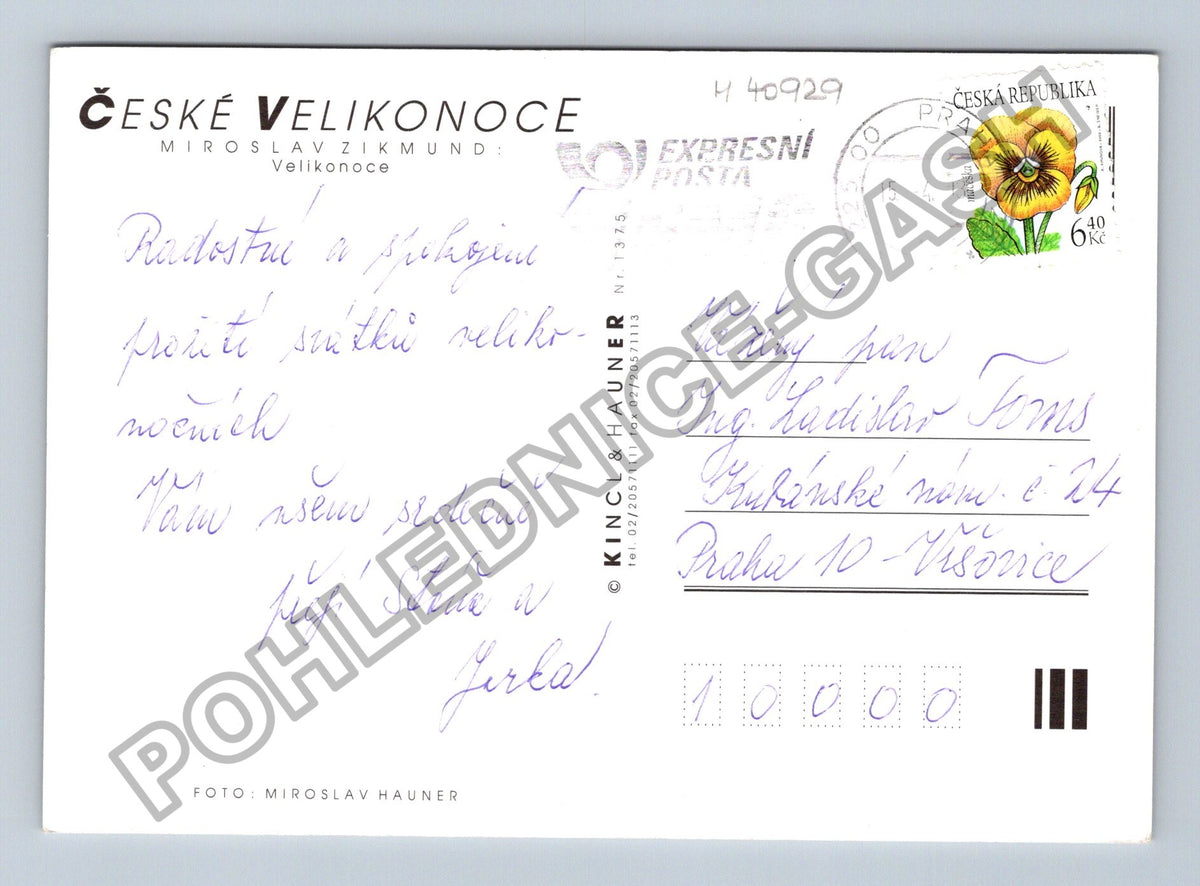 ČESKÉ VELIKONOCE
MIROSLAV ZIKMUND:
Velikonoce
Radostné a spokojené
prožití svátků veliko-
nočních
Vám všem srdečně
přejí Stáňa a
Jirka.
FOTO: MIROSLAV HAUNER
© KINCL & HAUNER Nr. 1375
tel. 02/20571111 fax 02/20571113
M 40929
EXPRESNÍ
POŠTA
225 00 PRAHA
15. 4.
ČESKÁ REPUBLIKA
maceška
6 40 Kč
Vážený pan
Ing. Ladislav Toms
Kubánské nám. č. 24
Praha 10 - Vršovice
10000
POHLEDNICE-GASH